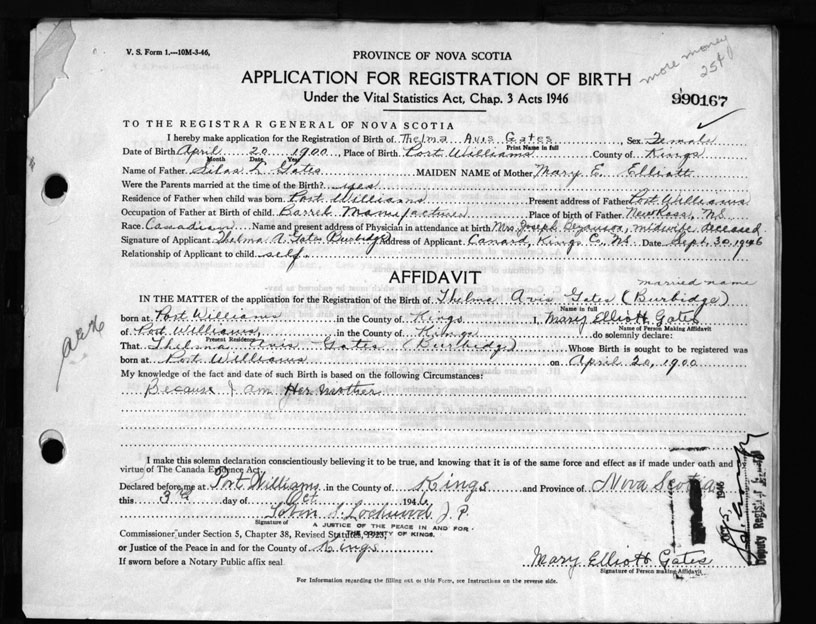 V. S. Form 1.—10M-3-46.
more money
25¢
PROVINCE OF NOVA SCOTIA
APPLICATION FOR REGISTRATION OF BIRTH
Under the Vital Statistics Act, Chap. 3 Acts 1946
990167
TO THE REGISTRAR GENERAL OF NOVA SCOTIA
I hereby make application for the Registration of Birth of Thelma Avis Gates Sex Female
Print Name in full
Date of Birth April 20 1900 Place of Birth Port Williams County of Kings
Month Date Year
Name of Father Silas L Gates MAIDEN NAME of Mother Mary E. Elliott
Were the Parents married at the time of the Birth? yes
Residence of Father when child was born Port Williams Present address of Father Port Williams
Occupation of Father at Birth of child Barrel Manufacturer Place of birth of Father New Ross, N.S
Race Canadian Name and present address of Physician in attendance at birth Mrs. Joseph midwife, deceased
Signature of Applicant Thelma A. Gates Burbidge Address of Applicant Canard, Kings Co, N.S Date Sept. 30, 1946
Relationship of Applicant to child self
AFFIDAVIT
married name
IN THE MATTER of the application for the Registration of the Birth of Thelma Avis Gates (Burbidge)
Name in full
born at Port Williams in the County of Kings I, Mary Elliott Gates
Name of Person Making Affidavit
of Port Williams, in the County of Kings do solemnly declare:
Present Residence
That Thelma Avis Gates (Burbidge) Whose Birth is sought to be registered was
born at Port Williams on April 20, 1900
My knowledge of the fact and date of such Birth is based on the following Circumstances:
Because I am Her mother
I make this solemn declaration conscientiously believing it to be true, and knowing that it is of the same force and effect as if made under oath and
virtue of The Canada Evidence Act.
Declared before me at Port Williams in the County of Kings and Province of Nova Scotia
this 3rd day of Oct 1946
Lockwood J.P.
Signature of
A JUSTICE OF THE PEACE IN AND FOR
THE COUNTY OF KINGS.
Commissioner under Section 5, Chapter 38, Revised Statutes, 1923,
or Justice of the Peace in and for the County of Kings
If sworn before a Notary Public affix seal
Mary Elliott Gates
Signature of Person making Affidavit
For Information regarding the filling out of this Form, see Instructions on the reverse side.
1946
Deputy Registrar